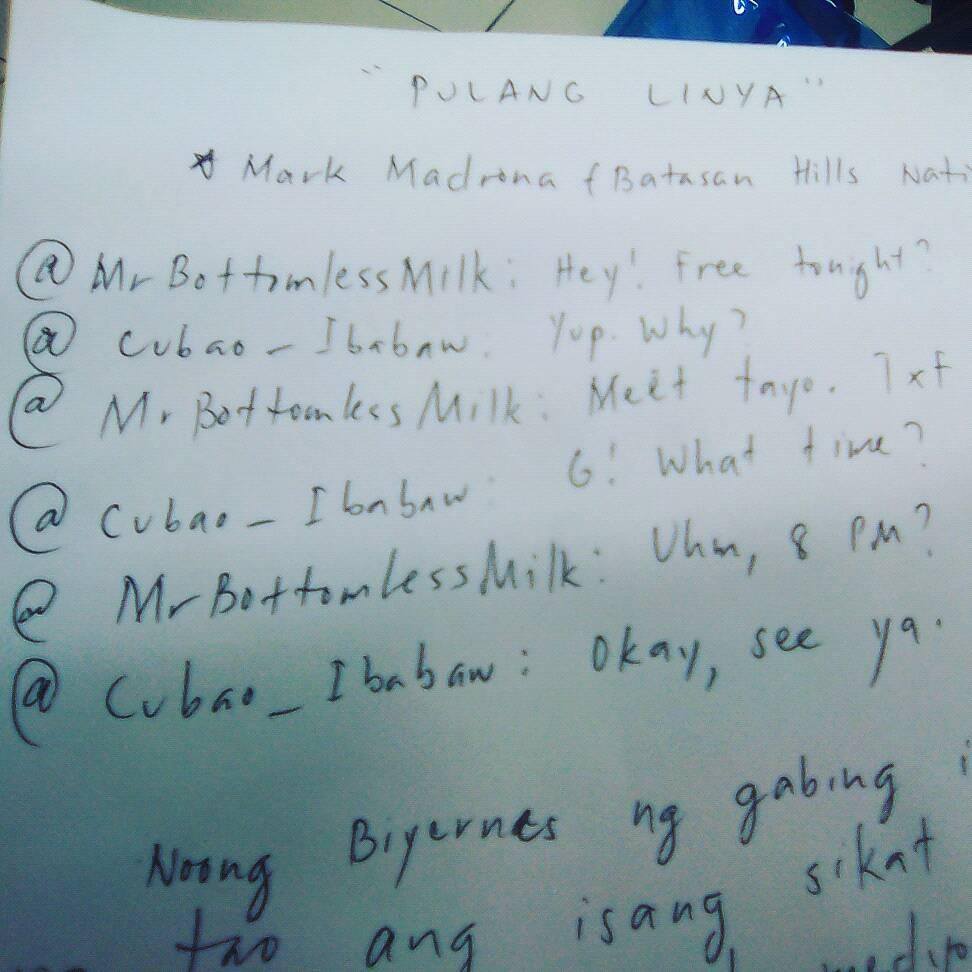 "PULANG LINYA"
* Mark Madrona (Batasan Hills Nati
@MrBottomlessMilk: Hey! Free tonight?
@Cubao_Ibabaw: Yup. Why?
@MrBottomlessMilk: Meet tayo. Txt
@Cubao_Ibabaw: G! What time?
@MrBottomlessMilk: Uhm, 8 PM?
@Cubao_Ibabaw: Okay, see ya.
Noong Biyernes ng gabing i
tao ang isang sikat
medyo